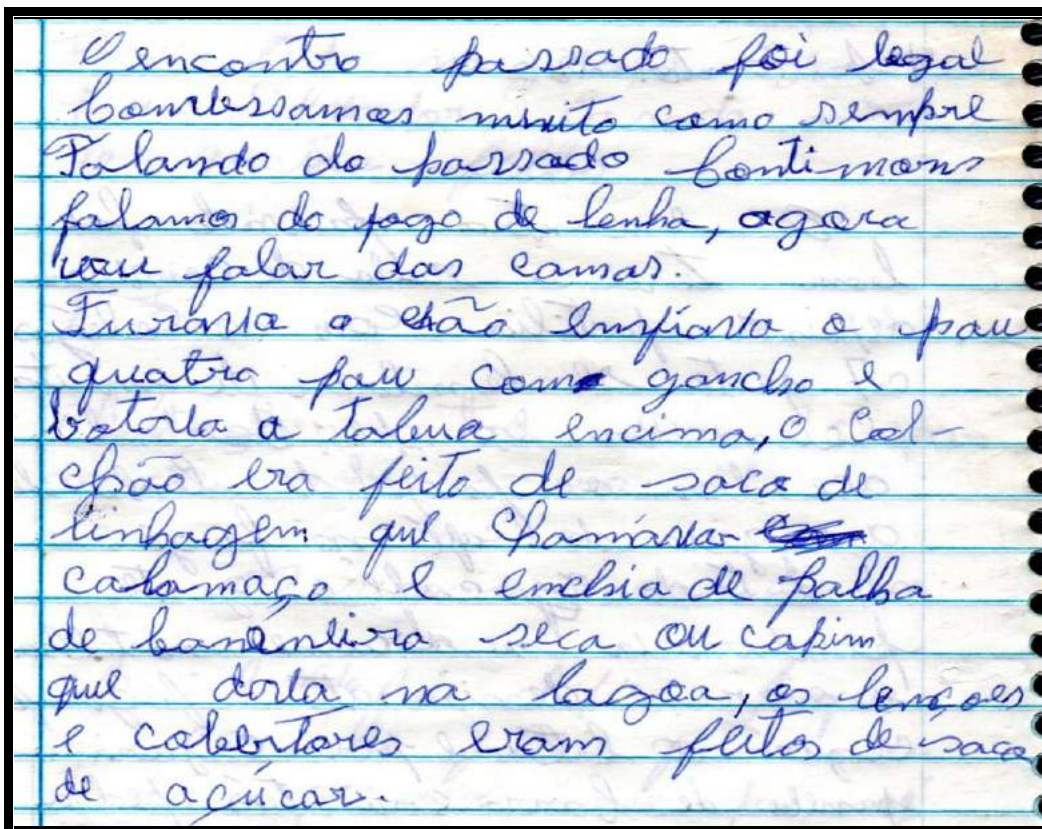 O encontro passado foi legal
Comversamos muito como sempre
Falando do passado Contimons
falamos do fogo de lenha, agora
vou falar das camas.
Furava o chão emfiava o pau
quatro pau com gancho e
botava a tabua encima, o Col-
chão era feito de saca de
linhagem que chamáva
calamaço e emchia de palha
de banéneira seca ou capim
que dava na lagoa, os lençoes
e cobertores eram feitos de saca
de açúcar.